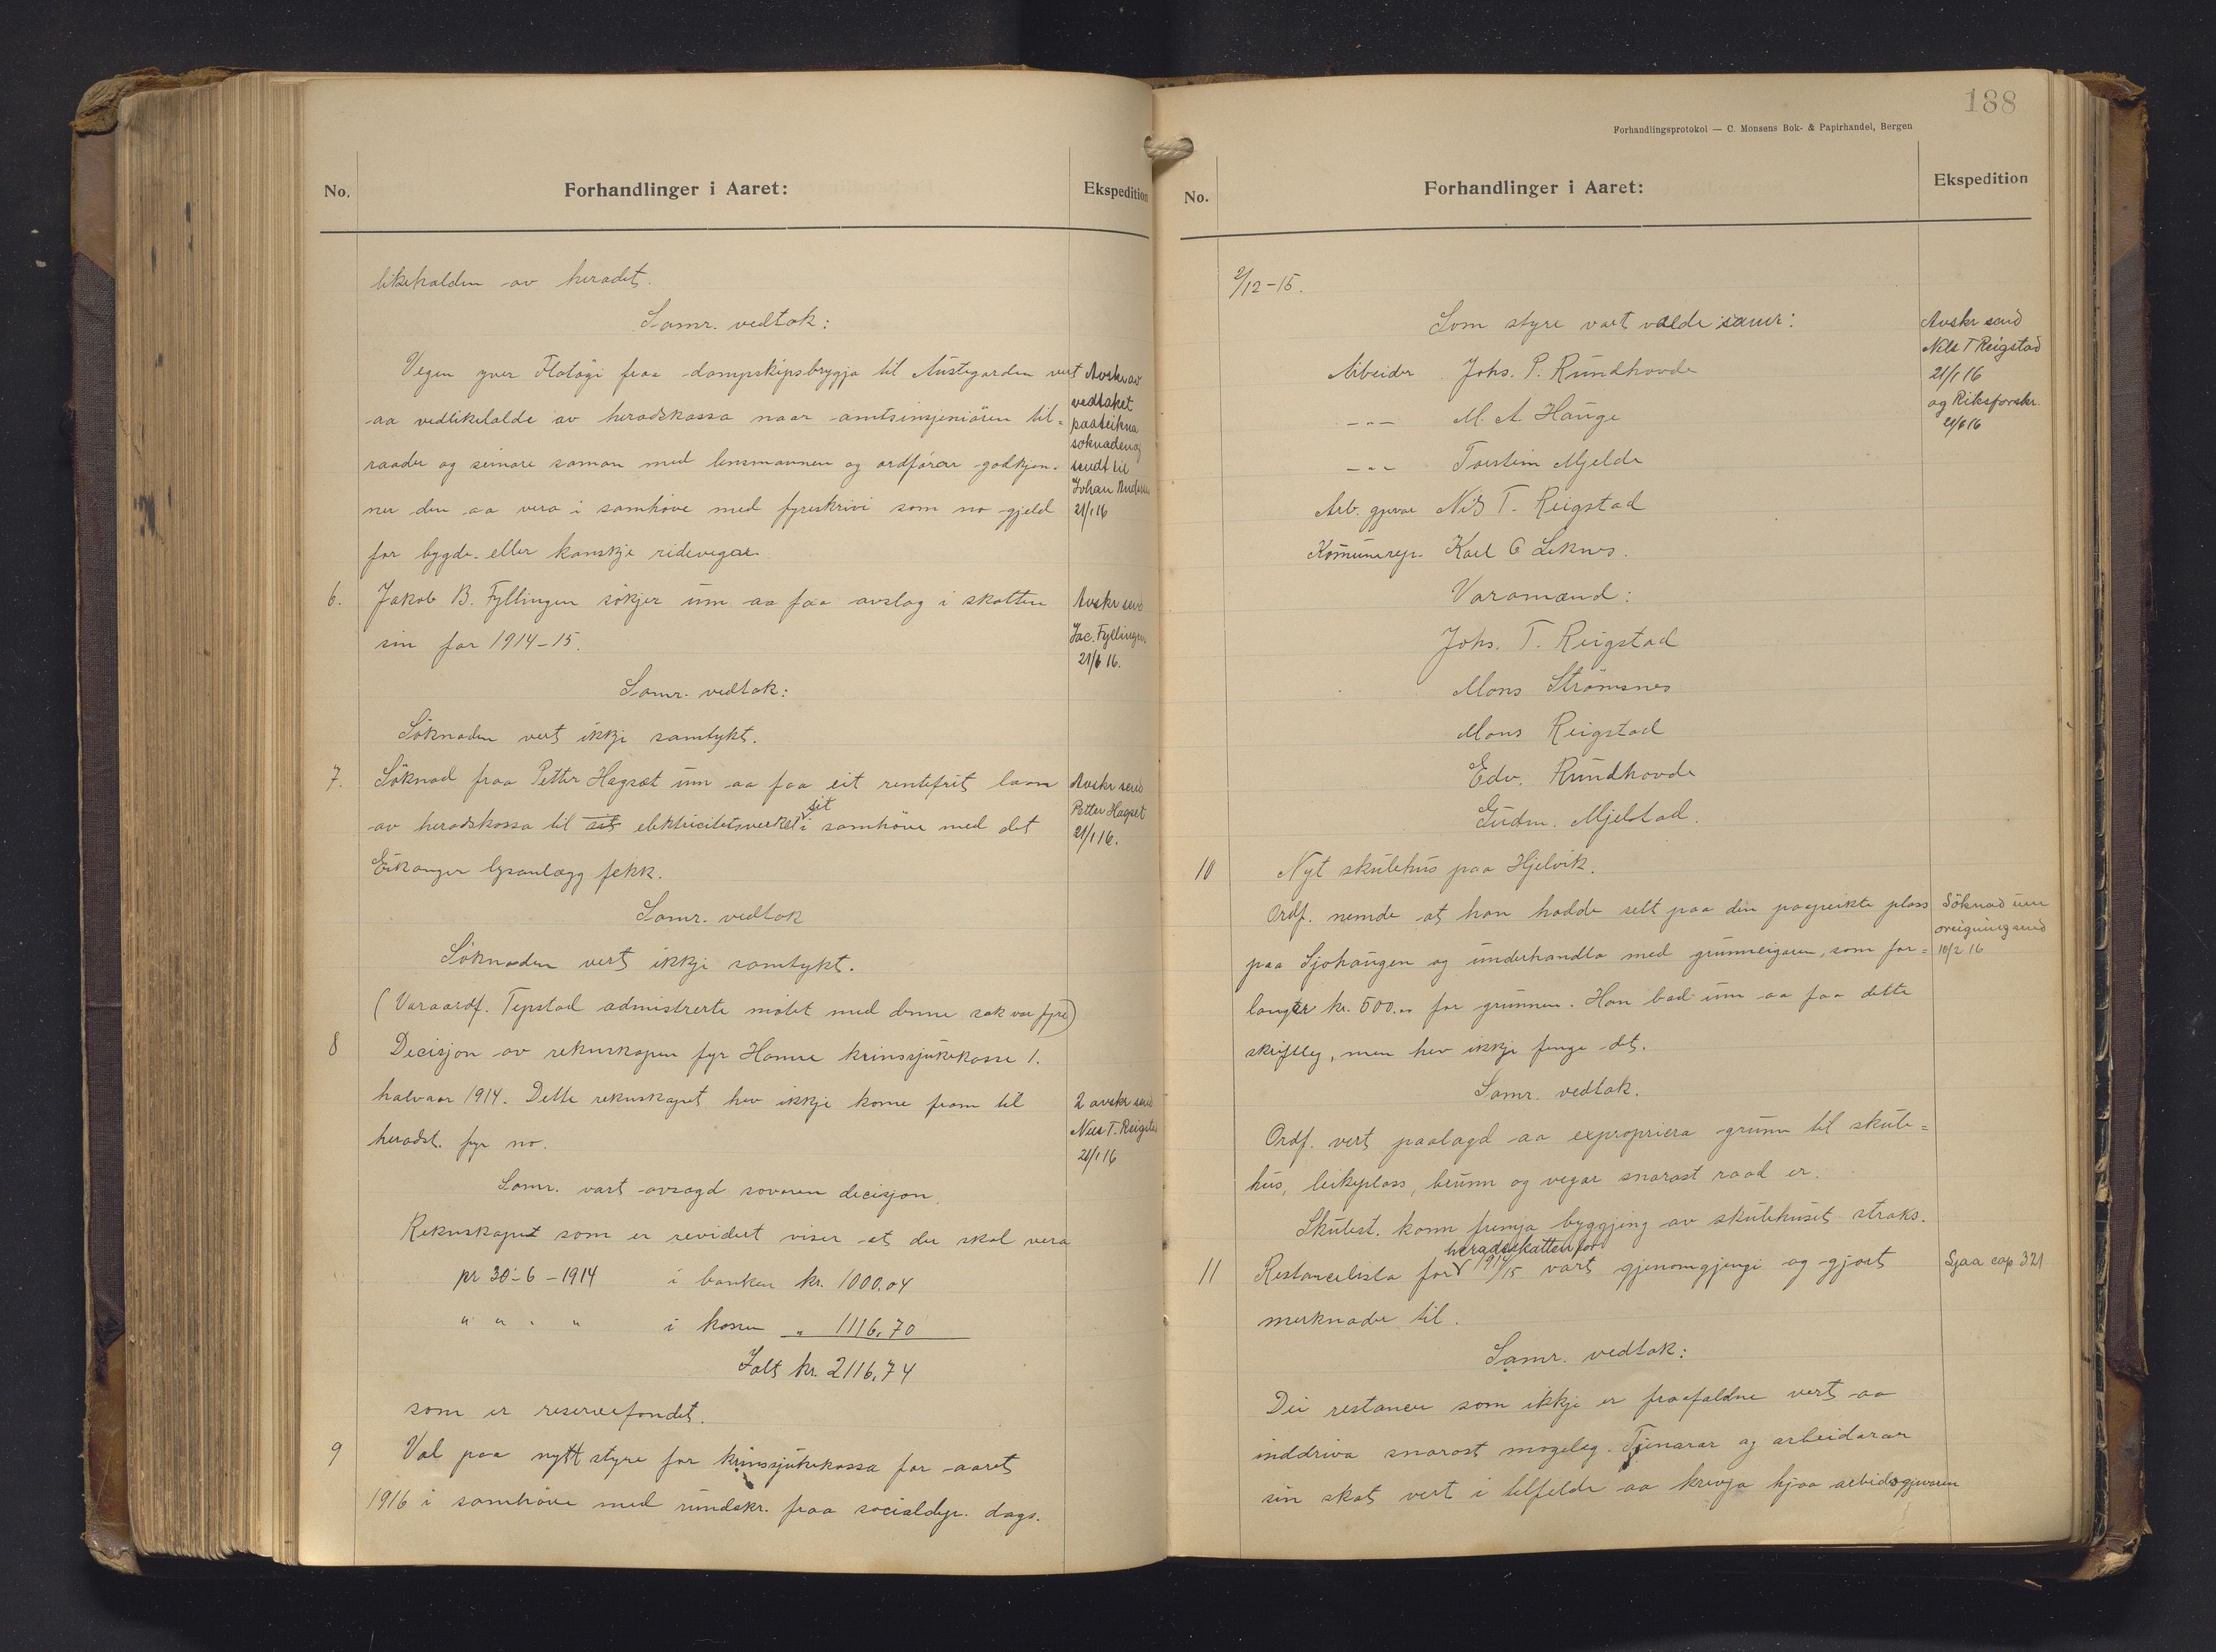 No.
Forhandlinger i Aaret:
Ekspedition
likehalden av heradet.
Samr. vedtak:
Vegen yver Flatøgi fraa dampskipsbryggja til Austegarden vert
aa vedlikehalde av heradskassa naar amtsinsjeniören til=
raader og seinare saman med lensmannen og ordförar godkjen-
ner den aa vera i samhöve med fyreskrivi som no gjeld
for bygde- eller kanskje ridevegar.
Avskr av
vedtaket
paateikna
söknaden og
sendt til
Johan Anders
21/1 16
6. Jakob B. Fyllingen sökjer um aa faa avslag i skatten
sin for 1914-15.
Avskr send
Jac. Fyllingen
21/1 16.
Samr. vedtak:
Söknaden vert ikkje samtykt.
7. Söknad fraa Petter Hagset um aa faa eit rentefrit laan
av heradskassa til sit elektricitetsverket sit i samhöve med det
Eikanger lysanlægg fekk.
Avskr send
Petter Hagset
21/1 16.
Samr. vedtak
Söknaden vert ikkje samtykt.
(Varaordf. Tepstad admistrerte mötet med denne sak var fyre)
8 Decisjon av rekneskapen fyr Hamre krinssjukekasse 1.
halvaar 1914. Dette rekneskapet hev ikkje kome fram til
heradst. fyr no.
2 avskr send
Nils T. Reigstad
21/1 16
Samr. vart avsagd sovoren decisjon.
Rekneskapet som er revidert viser at der skal vera
pr 30-6-1914 i banken kr. 1000.04
" " " " i kassen " 1116.70
Ialt kr. 2116.74
som er reservefondet.
9 Val paa nytt styre for krinssjukekassa for aaret
1916 i samhöve med rundskr. fraa socialdep. dags.
188
Forhandlingsprotokol — C. Monsens Bok- & Papirhandel, Bergen
No.
Forhandlinger i Aaret:
Ekspedition
2/12-15.
Som styre vart valde samr:
Arbeider Johs. P. Rundhovde
-"- M. A. Hauge
-"- Torstein Mjelde
Arb. gjevar Nils T. Reigstad
Komunerep. Karl O Leknes.
Avskr send
Nils T Reigstad
21/1 16
og Riksforskr.
21/1 16
Varamænd:
Johs. T. Reigstad
Mons Strömsnes
Mons Reigstad
Edv. Rundhovde
Gudm. Mjelstad.
10 Nyt skulehus paa Hjelvik.
Ordf. nemde at han hadde sett paa den paapeikte plass
paa Sjohaugen og underhandla med grunneigaren, som for=
langer kr. 500.00 for grunnen. Han bad um aa faa dette
skriftleg, men hev ikkje fenge det.
Söknad um
oreigning send
10/2 16
Samr. vedtak.
Ordf. vert paalagd aa expropriera grunn til skule=
hus, leikeplass, brunn og vegar snarast raad er.
Skulest. kann fremja byggjing av skulehuset straks.
11 Restancelista for heradsskatten for 1914/15 vart gjenomgjengi og gjort
merknader til.
Sjaa cop 321
Samr. vedtak:
Dei restancer som ikkje er fraafaldne vert aa
inddriva snarast mogeleg. Tjenarar og arbeidarar
sin skat vert i tilfelde aa krevja hjaa arbeidsgjevaren